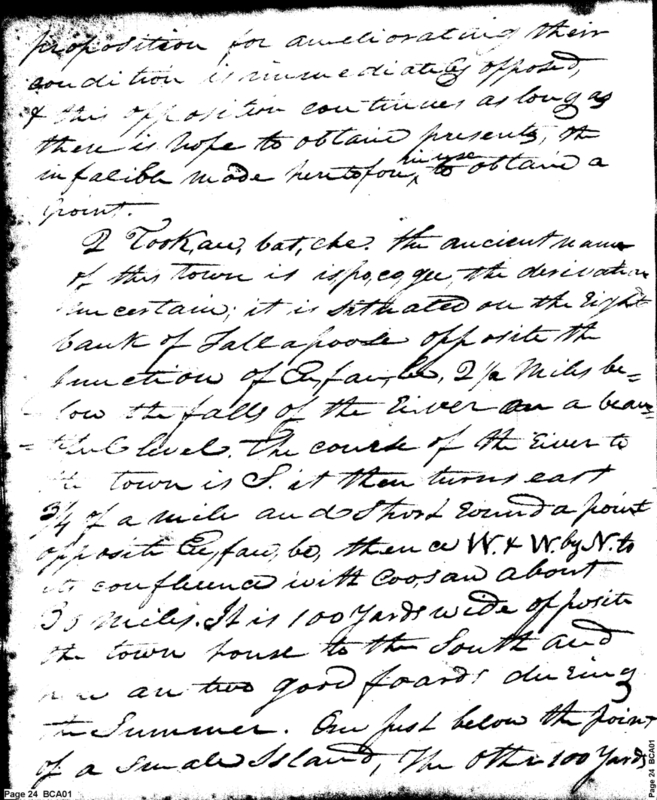 proposition for ameliorating their
condition is immediately opposed,
& this opposition continues as long as
there is hope to obtain presents, the
infalible mode heretofore, in use to obtain a
point.
2 Took,au,bat,che. the ancient name
of this town is is,po,co,gee, the derivation
uncertain; it is situated on the right
bank of Tallapoosa opposite the
junction of Eu,fau,be, 2 1/2 Miles be=
low the falls of the River on a beau=
=tiful level. The course of the River to
the town is S. it then turns east
3/4 of a mile and Short round a point
opposite Eu,fau,be, thence W. & W. by N. to
its confluence with Coosau about
30 miles. It is 100 Yards wide opposite
the town house to the South and
here are two good foards during
the Summer. One just below the point
of a Small Island, The other 100 Yards
Page 24 BCA01
Page 24 BCA01